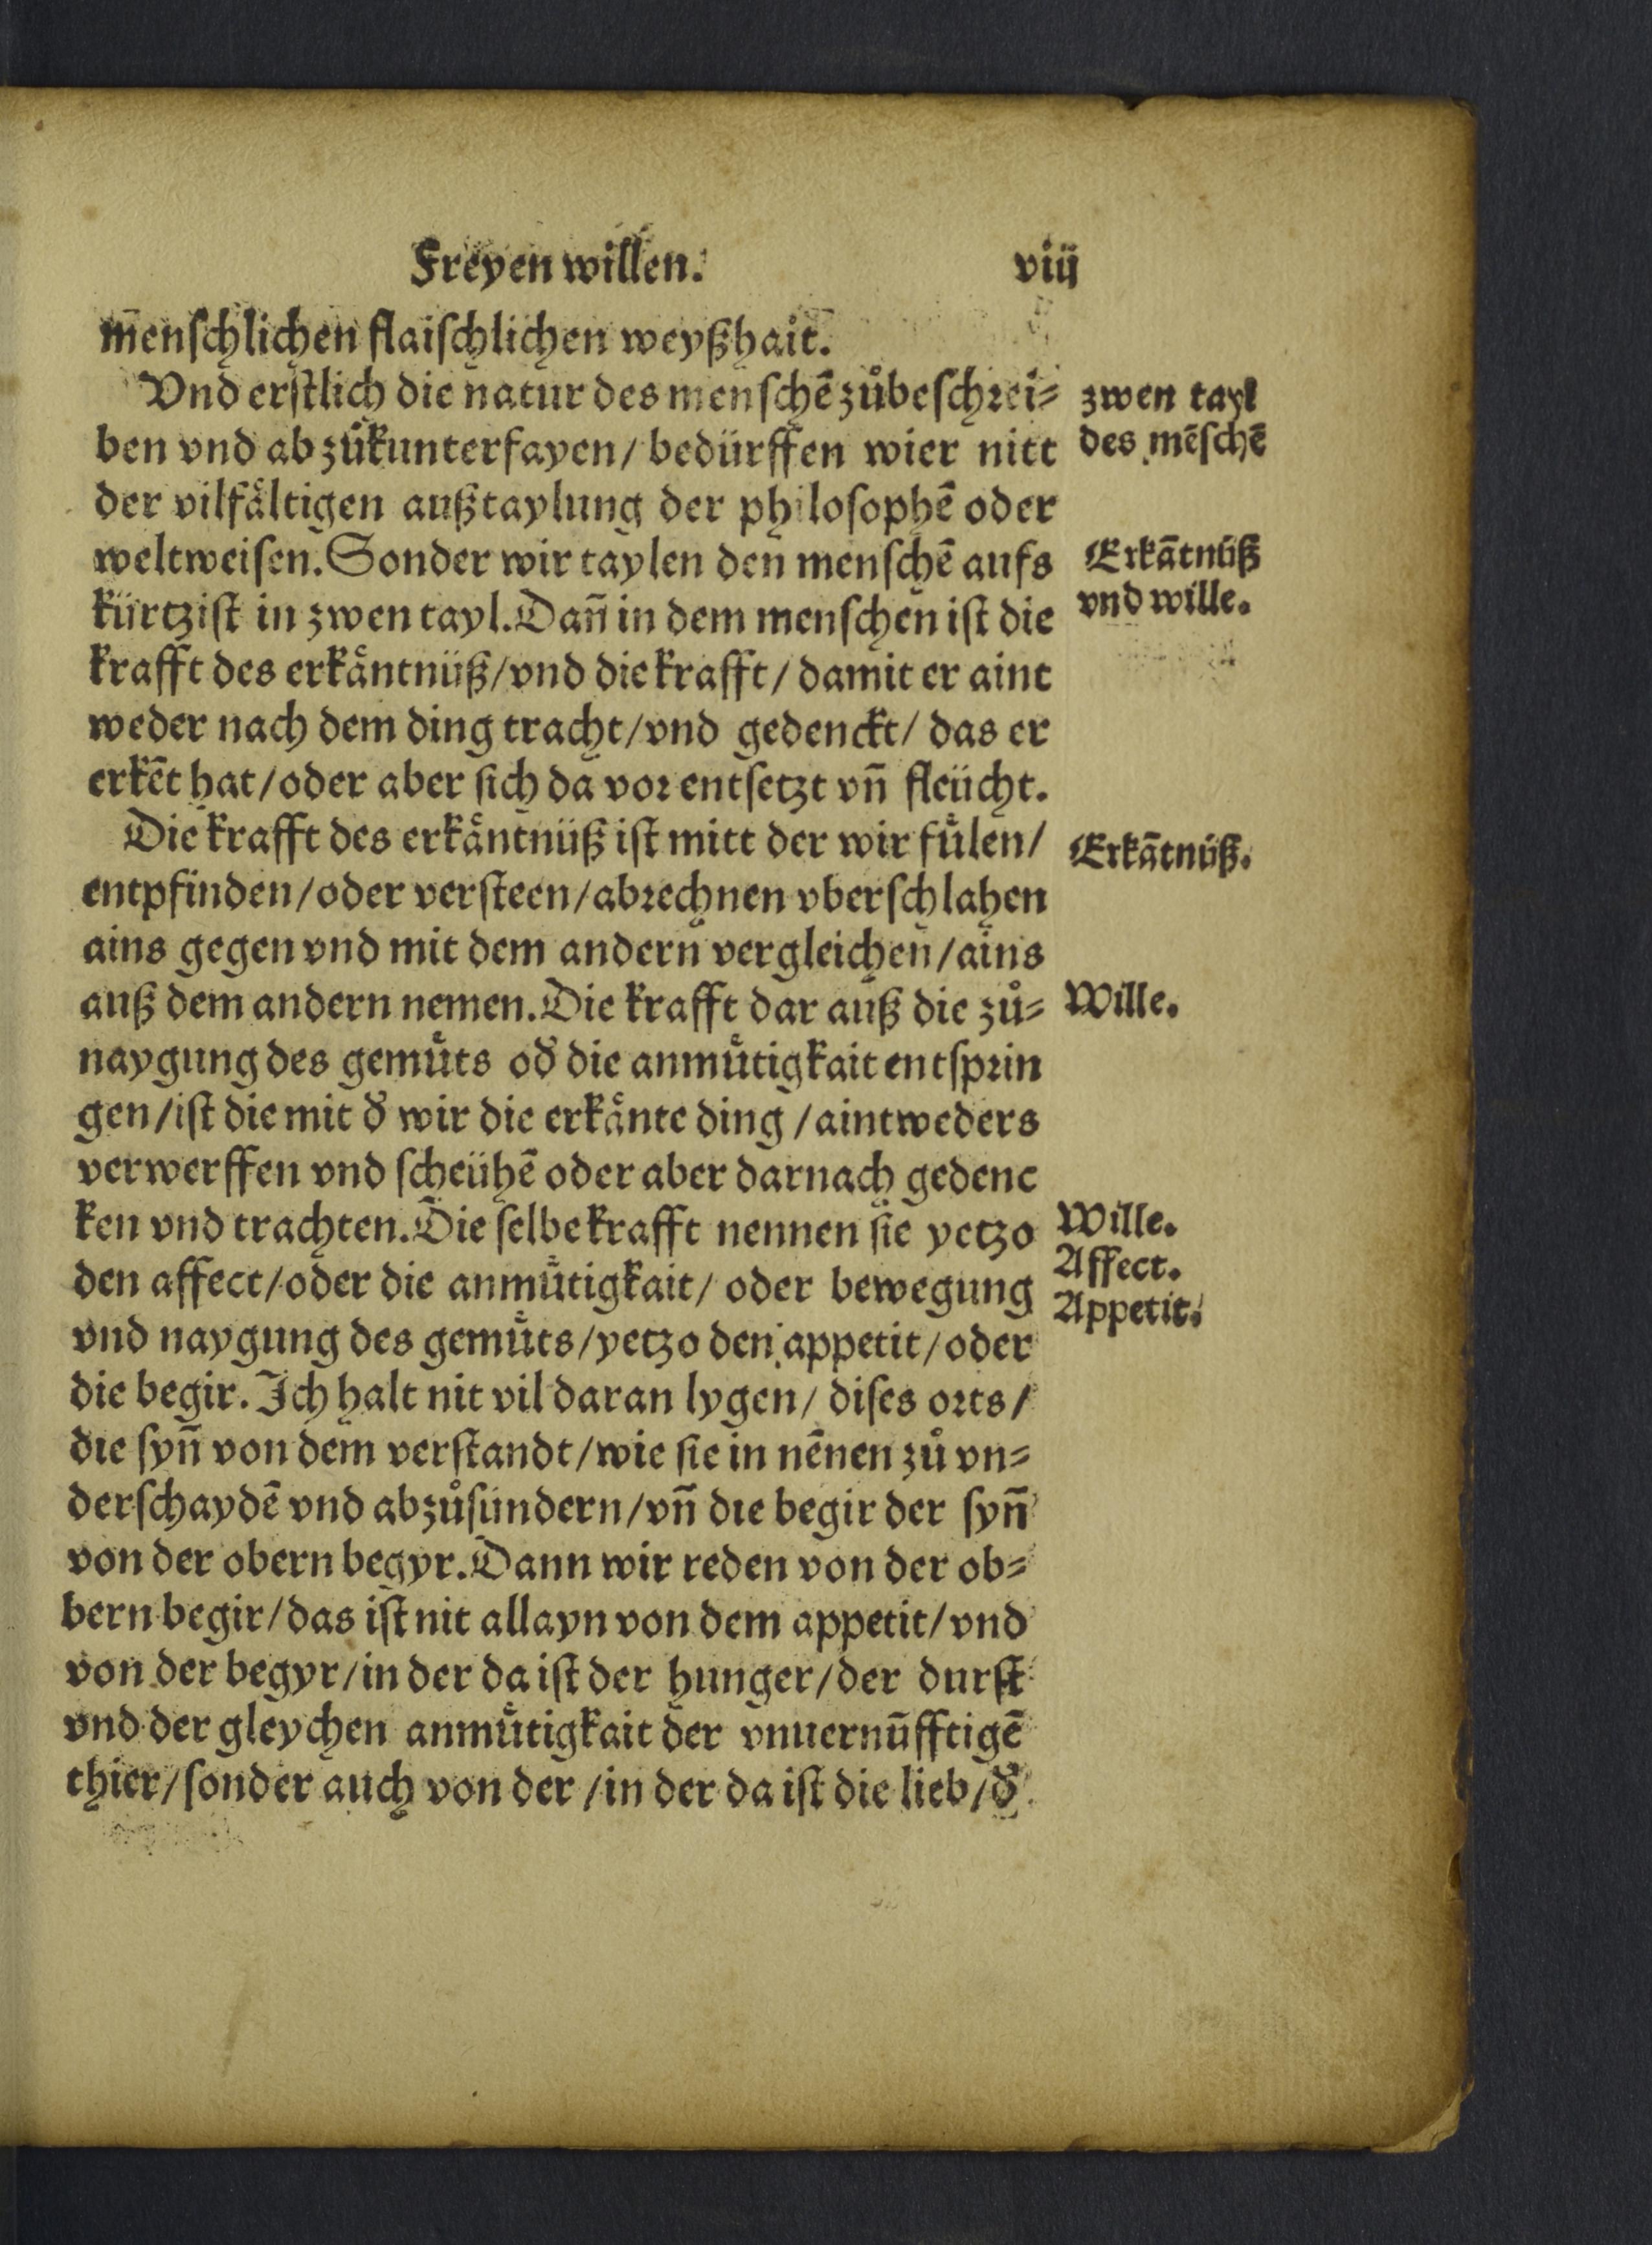 Freyen willen. viij
menſchlichen flaiſchlichen weyßhait.
Vnd erſtlich die natur des menſchē zůbeſchꝛei⸗
ben vnd ab zůkunterfayen/ bedürffen wier nitt
der vilfaͤltigen außtaylung der philoſophē oder
weltweiſen. Sonder wir taylen den menſchē aufs
kürtziſt in zwen tayl. Dañ in dem menſchen iſt die
krafft des erkaͤntnüß/ vnd die krafft/ damit er aint
weder nach dem ding tracht/ vnd gedenckt/ das er
erkēt hat/ oder aber ſich da voꝛ entſetzt vñ fleücht.
Die krafft des erkaͤntnüß iſt mitt der wir fuͤlen/
entpfinden/ oder verſteen/ abꝛechnen vberſchlahen
ains gegen vnd mit dem andern vergleichen/ ains
auß dem andern nemen. Die krafft dar auß die zů⸗
naygung des gemuͤts od̕ die anmuͤtigkait entſpꝛin
gen/ iſt die mit d̕ wir die erkaͤnte ding/ aintweders
verwerffen vnd ſcheühē oder aber darnach gedenc
ken vnd trachten. Die ſelbe krafft nennen ſie yetzo
den affect/ oder die anmuͤtigkait/ oder bewegung
vnd naygung des gemuͤts/ yetzo den appetit/ oder
die begir. Ich halt nit vil daran lygen/ diſes oꝛts/
die ſyñ von dem verſtandt/ wie ſie in nēnen zů vn⸗
derſchaydē vnd abzůſündern/ vñ die begir der ſyñ
von der obern begyr. Dann wir reden von der ob⸗
bern begir/ das iſt nit allayn von dem appetit/ vnd
von der begyr/ in der da iſt der hunger/ der durſt
vnd der gleychen anmuͤtigkait der vnuernũfftigē
thier/ ſonder auch von der/ in der da iſt die lieb/ d̕
zwen tayl
des mēſchē
Erkātnüß
vnd wille.
Erkātnüß.
Wille.
Wille.
Affect.
Appetit.